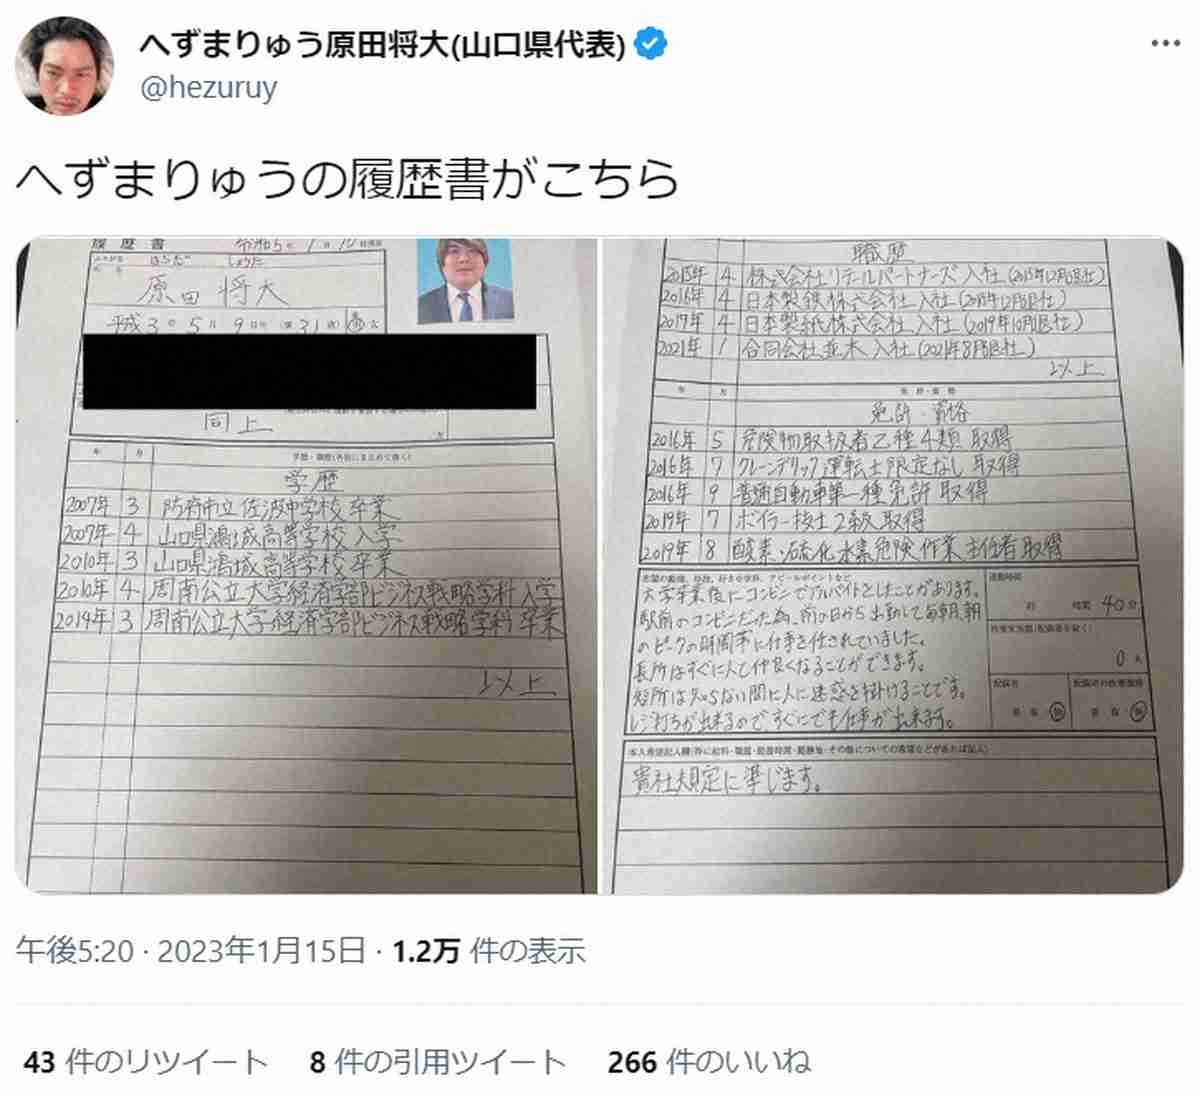 へずまりゅう原田将大(山口県代表)
@hezuruy
へずまりゅうの履歴書がこちら
履歴書 令和5年1月10日現在
はらだ しょうた
原田 将大
平成3年5月9日生(満31歳) 男・女
同上
年 月 学歴・職歴(各別にまとめて書く)
学歴
2007年 3 防府市立佐波中学校卒業
2007年 4 山口県鴻城高等学校入学
2010年 3 山口県鴻城高等学校卒業
2010年 4 周南公立大学経済学部ビジネス戦略学科入学
2014年 3 周南公立大学経済学部ビジネス戦略学科 卒業
以上
職歴
2015年 4 株式会社リテールパートナーズ入社(2015年12月退社)
2016年 4 日本製紙株式会社 入社(2018年12月退社)
2019年 4 日本製紙株式会社 入社(2019年10月退社)
2021年 1 合同会社並木 入社(2021年8月退社)
以上
年 月 免許・資格
免許・資格
2016年 5 危険物取扱者乙種4類 取得
2016年 7 クレーンデリック運転士限定なし 取得
2016年 9 普通自動車第一種免許 取得
2019年 7 ボイラー技士2級 取得
2019年 8 酸素・硫化水素危険作業主任者 取得
志望の動機、特技、好きな学科、アピールポイントなど
大学卒業後にコンビニでアルバイトをしたことがあります。
駅前のコンビニだった為、前の日から出勤して毎朝、朝
のピークの時間帯に仕事を任されていました。
長所はすぐに人と仲良くなることができます。
短所は知らない間に人に迷惑を掛けることです。
レジ打ちが出来るのですぐにでも仕事が出来ます。
通勤時間
約 時間 40分
扶養家族数(配偶者を除く)
0人
配偶者
有・無
配偶者の扶養義務
有・無
本人希望記入欄(特に給料・職種・勤務時間・勤務地・その他についての希望などがあれば記入)
貴社規定に準じます。
午後5:20 · 2023年1月15日 · 1.2万 件の表示
43 件のリツイート 8 件の引用ツイート 266 件のいいね